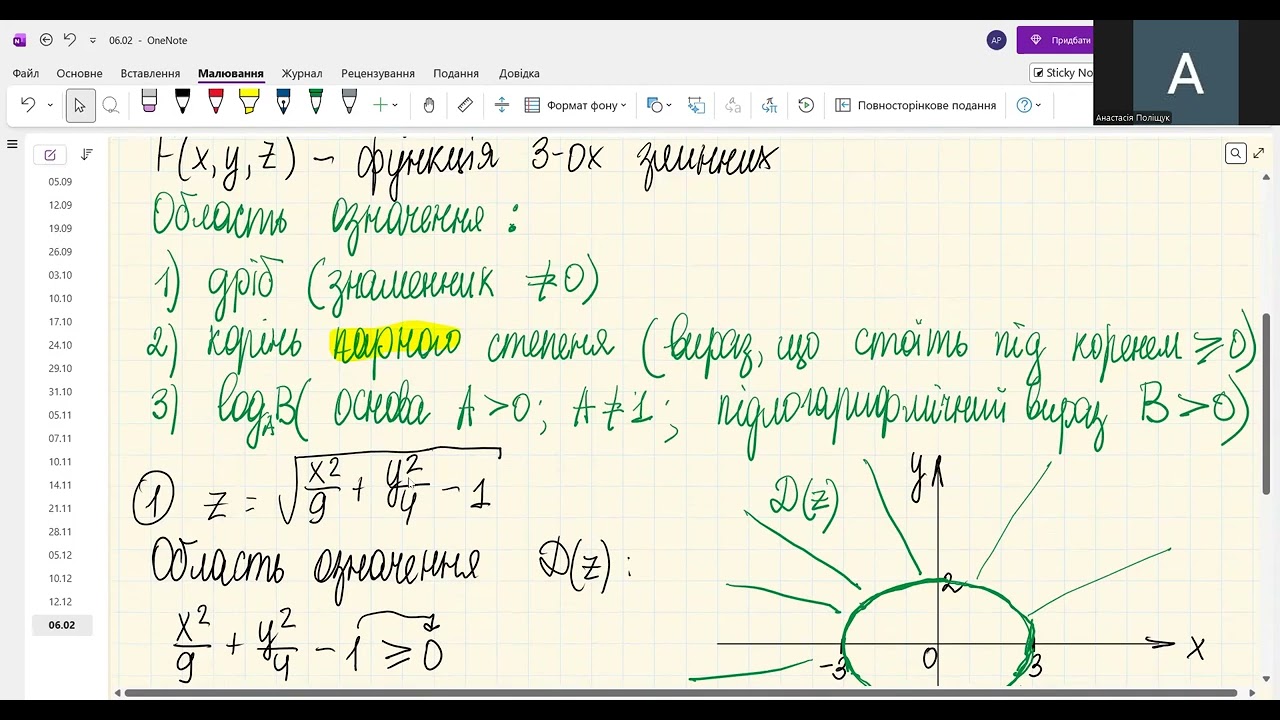 06.02 - OneNote
АР
Придбати
Файл Основне Вставлення Малювання Журнал Рецензування Подання Довідка
Sticky No
Формат фону
Повносторінкове подання
A
Анастасія Поліщук
05.09
12.09
19.09
26.09
03.10
10.10
17.10
24.10
29.10
31.10
05.11
07.11
10.11
14.11
21.11
28.11
05.12
10.12
12.12
06.02
F(x, y, z) - функція 3-ох змінних
Область означення :
1) дріб (знаменник ≠0)
2) корінь парного степеня (вираз, що стоїть під коренем ≥0)
3) log_A B ( основа A>0; A≠1; підлогарифмічний вираз B>0)
① z = √(x²/9 + y²/4 - 1)
Область означення D(z) :
x²/9 + y²/4 - 1 ≥ 0
y
D(z)
2
-3 0 3 x